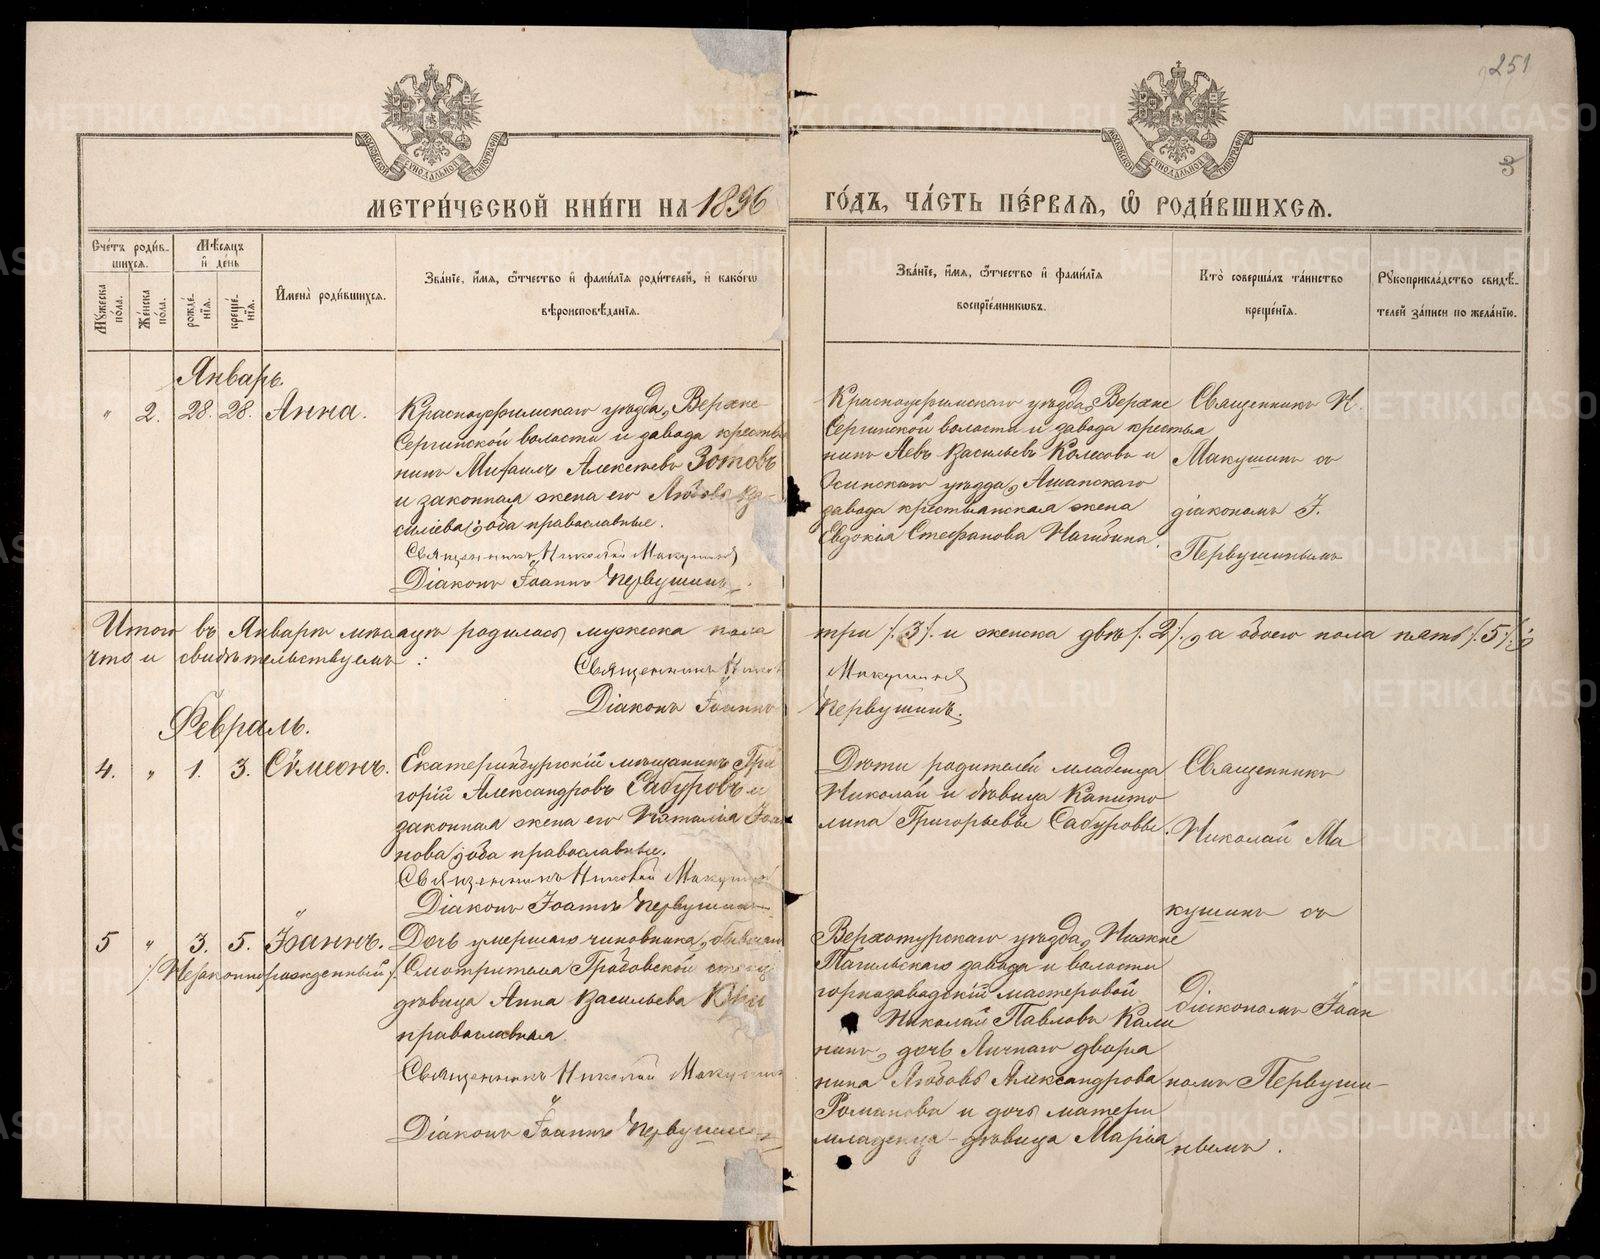 251
3
МОСКОВСКОЙ СѴНОДАЛЬНОЙ ТИПОГРАФІИ
МОСКОВСКОЙ СѴНОДАЛЬНОЙ ТИПОГРАФІИ
МЕТРИ́ЧЕСКОЙ КНИ́ГИ НА 1896
ГО́ДЪ, ЧА́СТЬ ПЕ́РВАЯ, Ѡ҆ РОДИ́ВШИХСѦ.
Сче́тъ роди́в-
шихся.
Мѣ́сяцъ
и҆ де́нь
Мꙋ́жеска по́ла.
Же́нска по́ла.
рожде́нїѧ.
креще́нїѧ.
И҆мена̀ роди́вшихсѧ.
Зва́нїе, и҆́мѧ, ѻ҆́тчество и҆ фами́лїѧ роди́телей, и҆ како́гѡ
вѣроисповѣ́данїѧ.
Зва́нїе, и҆́мѧ, ѻ҆́тчество и҆ фами́лїѧ
воспрїе́мникѡвъ.
Кто̀ соверша́лъ та́инство
креще́нїѧ.
Рꙋкоприкла́дство свидѣ́-
телей за́писи по жела́нїю.
Январь.
" 2. 28. 28. Анна.
Красноуфимскаго уѣзда, Верхне-
Сергинской волости и завода крестья
нинъ Михаилъ Алексѣевъ Зотовъ
и законная жена его Любовь Ва-
сильева; оба православные.
Священникъ Николай Макушинъ
Діаконъ Іоаннъ Первушинъ.
Красноуфимскаго уѣзда, Верхне
Сергинской волости и завода крестья
нинъ Левъ Васильевъ Колесовъ и
Осинскаго уѣзда, Ашапскаго
завода крестьянская жена
Евдокія Стефанова Нагибина.
Священникъ Н.
Макушинъ съ
діакономъ І.
Первушинымъ
Итого въ Январѣ мѣсяцѣ родилось мужеска пола три /.3/. и женска двѣ /.2/., а обоего пола пять /.5/.;
что и свидѣтельствуемъ:
Священникъ Никол Макушинъ
Діаконъ Іоаннъ Первушинъ.
Февраль.
4. " 1. 3. Сѵмеонъ.
Екатеринбургскій мѣщанинъ Гри
горій Александровъ Сабуровъ и
законная жена его Наталія Іоан
нова, оба православные.
Священникъ Николай Макушинъ
Діаконъ Іоаннъ Первушинъ
Дѣти родителей младенца
Николай и дѣвица Капито
лина Григорьевы Сабуровы.
Священникъ
Николай Ма
кушинъ съ
5 " 3. 5. Іоаннъ.
/.Незаконнорожденный/.
Дочь умершаго чиновника, бывшаго
Смотрителя Грабовской
дѣвица Анна Васильева
православная
Священникъ Николай Макушин
Діаконъ Іоаннъ Первушинъ
Верхотурскаго уѣзда, Нижне
Тагильскаго завода и волости
горнозаводскій мастеровой
Николай Павловъ Кали
нинъ, дочь Личнаго дворя
нина Любовь Александрова
Романова и дочь матери
младенца - дѣвица Марія
Діакономъ Іоан
номъ Первуши-
нымъ.